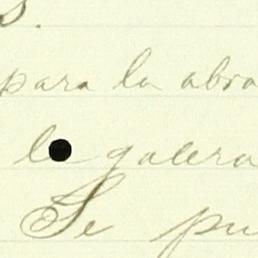 s.
para la abra
galera
Se pu